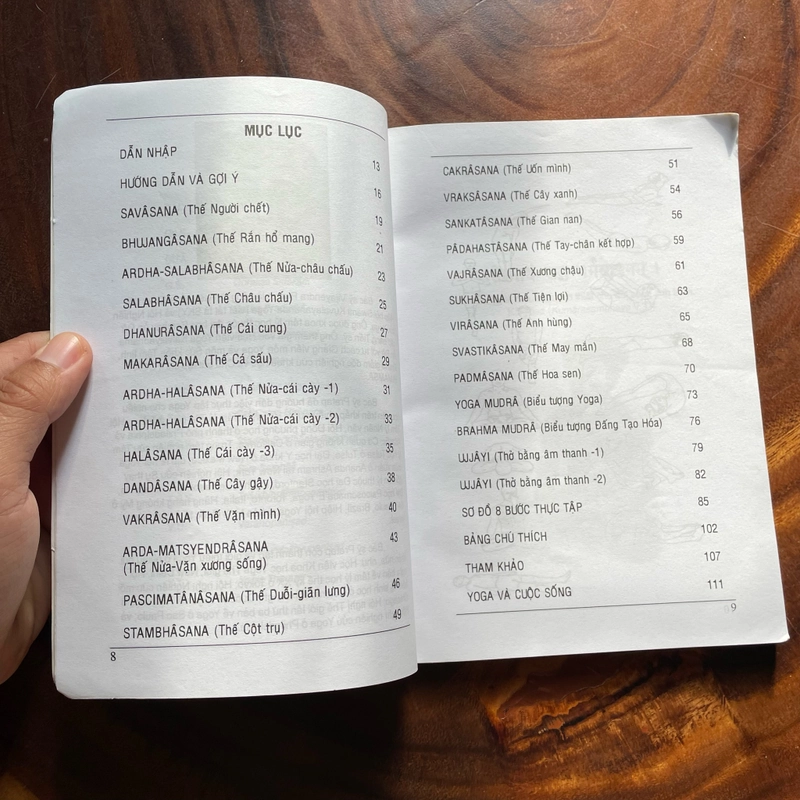 MỤC LỤC
DẪN NHẬP 13
HƯỚNG DẪN VÀ GỢI Ý 16
SAVÂSANA (Thế Người chết) 19
BHUJANGÂSANA (Thế Rắn hổ mang) 21
ARDHA-SALABHÂSANA (Thế Nửa-châu chấu) 23
SALABHÂSANA (Thế Châu chấu) 25
DHANURÂSANA (Thế Cái cung) 27
MAKARÂSANA (Thế Cá sấu) 29
ARDHA-HALÂSANA (Thế Nửa-cái cày -1) 31
ARDHA-HALÂSANA (Thế Nửa-cái cày -2) 33
HALÂSANA (Thế Cái cày -3) 35
DANDÂSANA (Thế Cây gậy) 38
VAKRÂSANA (Thế Vặn mình) 40
ARDA-MATSYENDRÂSANA 43
(Thế Nửa-Vặn xương sống)
PASCIMATÂNÂSANA (Thế Duỗi-giãn lưng) 46
STAMBHÂSANA (Thế Cột trụ) 49
8
CAKRÂSANA (Thế Uốn mình) 51
VRAKSÂSANA (Thế Cây xanh) 54
SANKATÂSANA (Thế Gian nan) 56
PÂDAHASTÂSANA (Thế Tay-chân kết hợp) 59
VAJRÂSANA (Thế Xương chậu) 61
SUKHÂSANA (Thế Tiện lợi) 63
VIRÂSANA (Thế Anh hùng) 65
SVASTIKÂSANA (Thế May mắn) 68
PADMÂSANA (Thế Hoa sen) 70
YOGA MUDRÂ (Biểu tượng Yoga) 73
BRAHMA MUDRÂ (Biểu tượng Đấng Tạo Hóa) 76
UJJÂYI (Thở bằng âm thanh -1) 79
UJJÂYI (Thở bằng âm thanh -2) 82
SƠ ĐỒ 8 BƯỚC THỰC TẬP 85
BẢNG CHÚ THÍCH 102
THAM KHẢO 107
YOGA VÀ CUỘC SỐNG 111
9